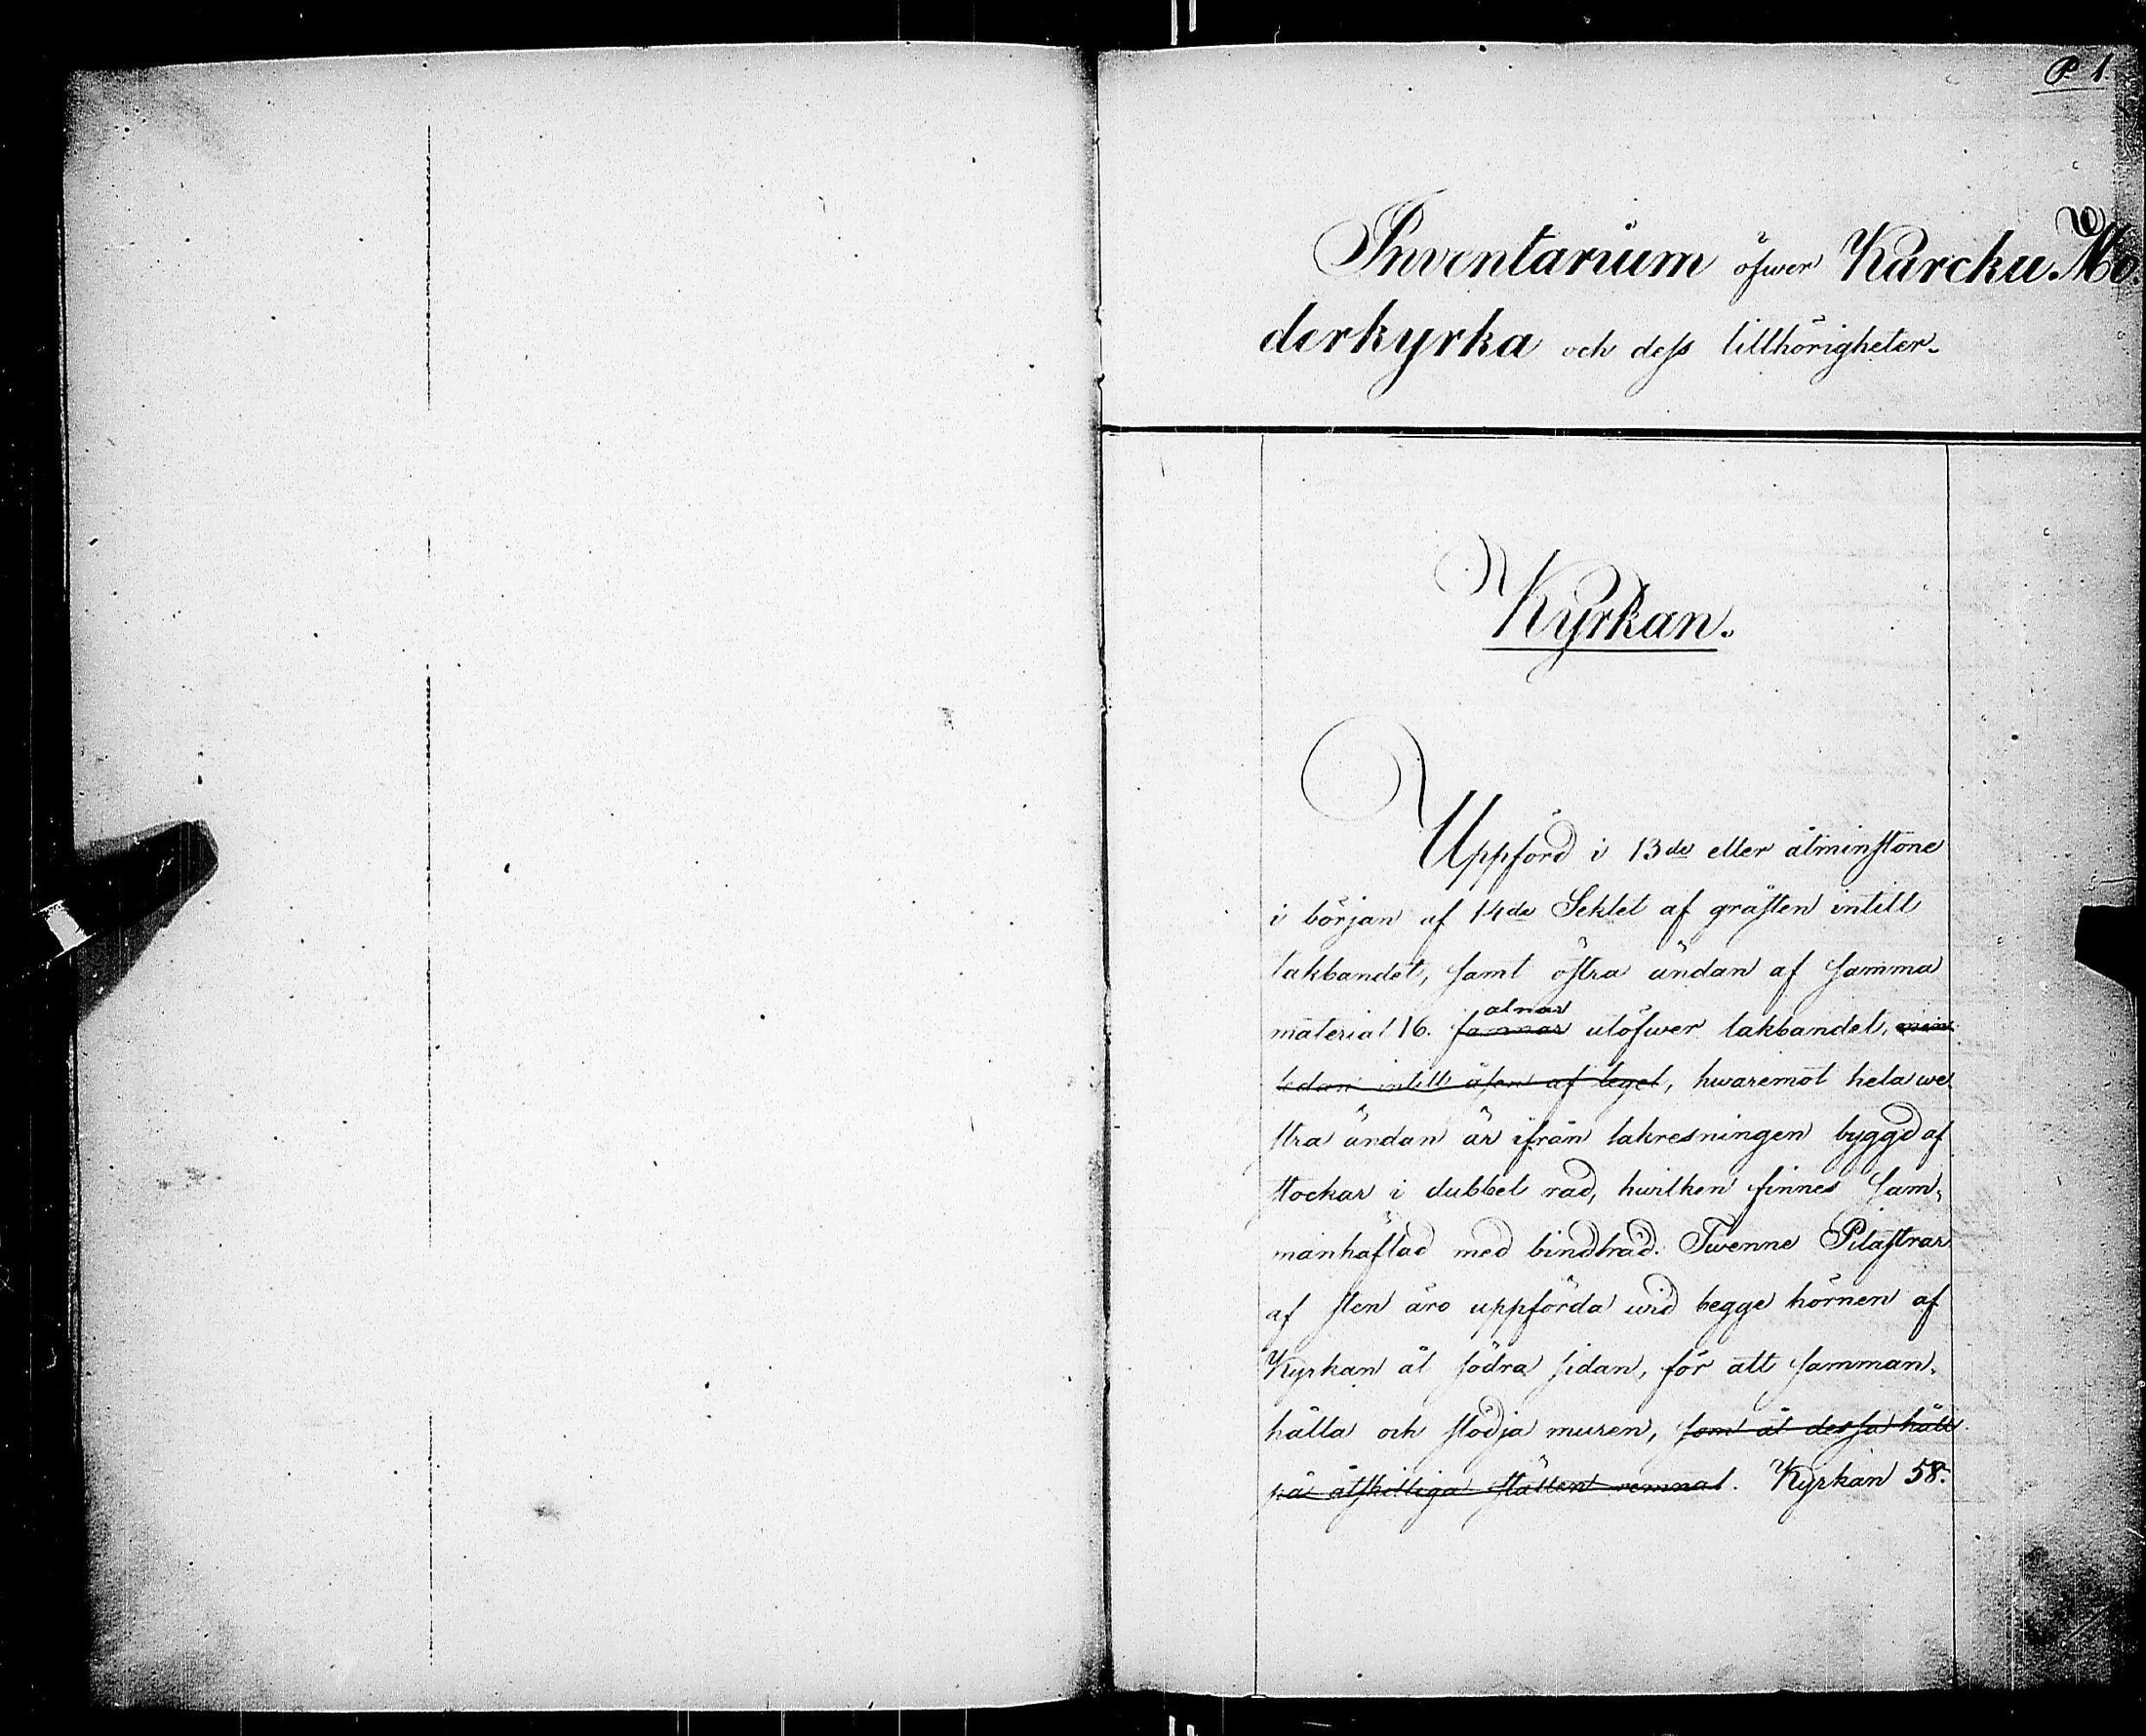 P 1.
Inventarium öfwer Karcku Mo-
derkyrka och dess tillhörigheter.
Kyrkan.
Uppförd i 13de eller åtminstone
i början af 14de Seklet af gråsten intill
takbandet, samt östra ändan af samma
alnar
material 16. famnar utöfwer takbandet,
sedan intill åsen af tegel, hwaremot hela we-
stra ändan är ifrån takresningen byggd af
stockar i dubbel rad, hwilken finnes sam-
manhäftad med bindträd. Twenne Pilastrar
af sten äro uppförda wid begge hörnen af
Kyrkan åt södra sidan, för att samman-
hålla och stödja muren, som åt dessa håll
på åtskilliga ställen remnat. Kyrkan 58.